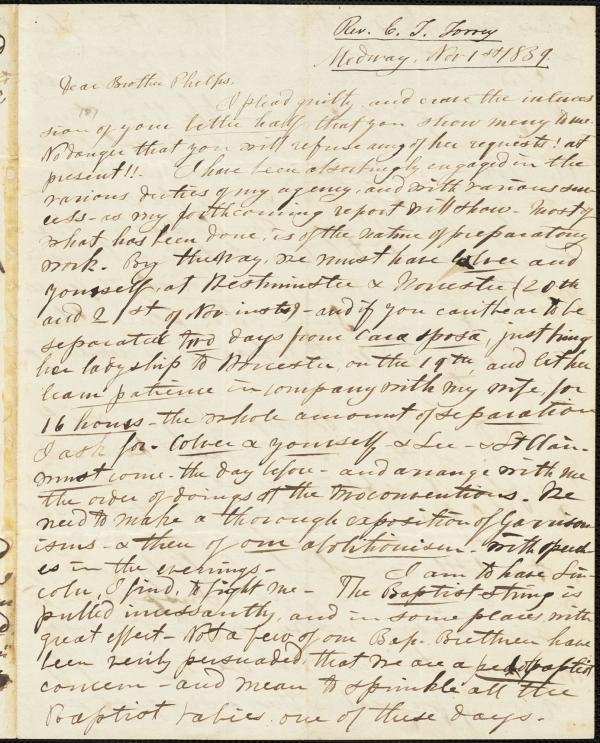 Rev. C. T. Torrey
Medway, Nov 1st 1839.
Dear Brother Phelps,
I plead guilty, and crave the interces
sion of your better half, that you show mercy to me.
No danger that you will refuse any of her requests! at
present!! I have been absorbingly engaged in the
various duties of my agency, and with various suc-
cess - as my forthcoming report will show - Most of
what has been done, is of the nature of preparatory
work. By the way, we must have Colver and
yourself, at Westminster & Worcester (20th
and 21st of Nov. inst) - and if you can't bear to be
separated two days from cara sposa, just bring
her ladyship to Worcester, on the 19th, and let her
learn patience in company with my wife, for
16 hours - the whole amount of separation
I ask for. Colver & yourself - & Lee - & St Clair -
must come - the day before - and arrange with me
the order of doings at the two conventions. We
need to make a thorough exposition of Garrison
isms - & then of our abolitionism - with speech
es in the evenings -
I am to have Lin-
coln, I find, to fight me - The Baptist string is
pulled incessantly, and in some places with
great effect - Not a few of our Bap. Brethren have
been verily persuaded that we are a pedobaptist
concern - and mean to sprinkle all the
Baptist babies one of these days.